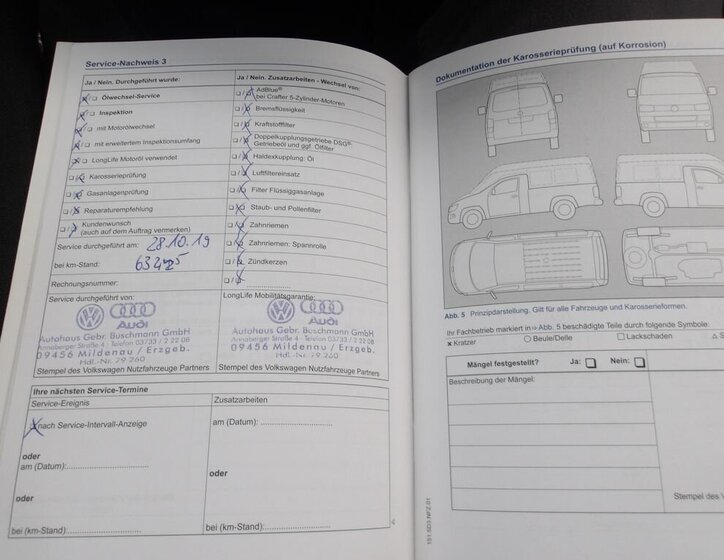 Service-Nachweis 3
Ja / Nein. Durchgeführt wurde:
Ölwechsel-Service
Inspektion
mit Motorölwechsel
mit erweitertem Inspektionsumfang
LongLife Motoröl verwendet
Karosserieprüfung
Gasanlagenprüfung
Reparaturempfehlung
Kundenwunsch
(auch auf dem Auftrag vermerken)
Service durchgeführt am: 28.10.19
bei km-Stand:
Rechnungsnummer:
Ja / Nein. Zusatzarbeiten - Wechsel von:
AdBlue®
bei Crafter 5-Zylinder-Motoren
Bremsflüssigkeit
Kraftstofffilter
Doppelkupplungsgetriebe DSG®
Getriebeöl und ggf. Ölfilter
Haldexkupplung: Öl
Luftfiltereinsatz
Filter Flüssiggasanlage
Staub- und Pollenfilter
Zahnriemen
Zahnriemen: Spannrolle
Zündkerzen
Service durchgeführt von:
Audi
Autohaus Gebr. Buschmann GmbH
Annaberger Straße 4 · Telefon 03733 / 2 22 08
09456 Mildenau / Erzgeb.
Hdl.-Nr. 79 260
Stempel des Volkswagen Nutzfahrzeuge Partners
LongLife Mobilitätsgarantie:
Audi
Autohaus Gebr. Buschmann GmbH
Annaberger Straße 4 · Telefon 03733 / 2 22 08
09456 Mildenau / Erzgeb.
Hdl.-Nr. 79 260
Stempel des Volkswagen Nutzfahrzeuge Partners
Ihre nächsten Service-Termine
Service-Ereignis
nach Service-Intervall-Anzeige
oder
am (Datum):
oder
bei (km-Stand):
Zusatzarbeiten
am (Datum):
oder
bei (km-Stand):
4
Dokumentation der Karosserieprüfung (auf Korrosion)
Abb. 5 Prinzipdarstellung. Gilt für alle Fahrzeuge und Karosserieformen.
Ihr Fachbetrieb markiert in ⇨ Abb. 5 beschädigte Teile durch folgende Symbole:
× Kratzer
○ Beule/Delle
□ Lackschaden
△ S
Mängel festgestellt? Ja: Nein:
Beschreibung der Mängel:
Stempel des V
151.5D3.NFZ.01